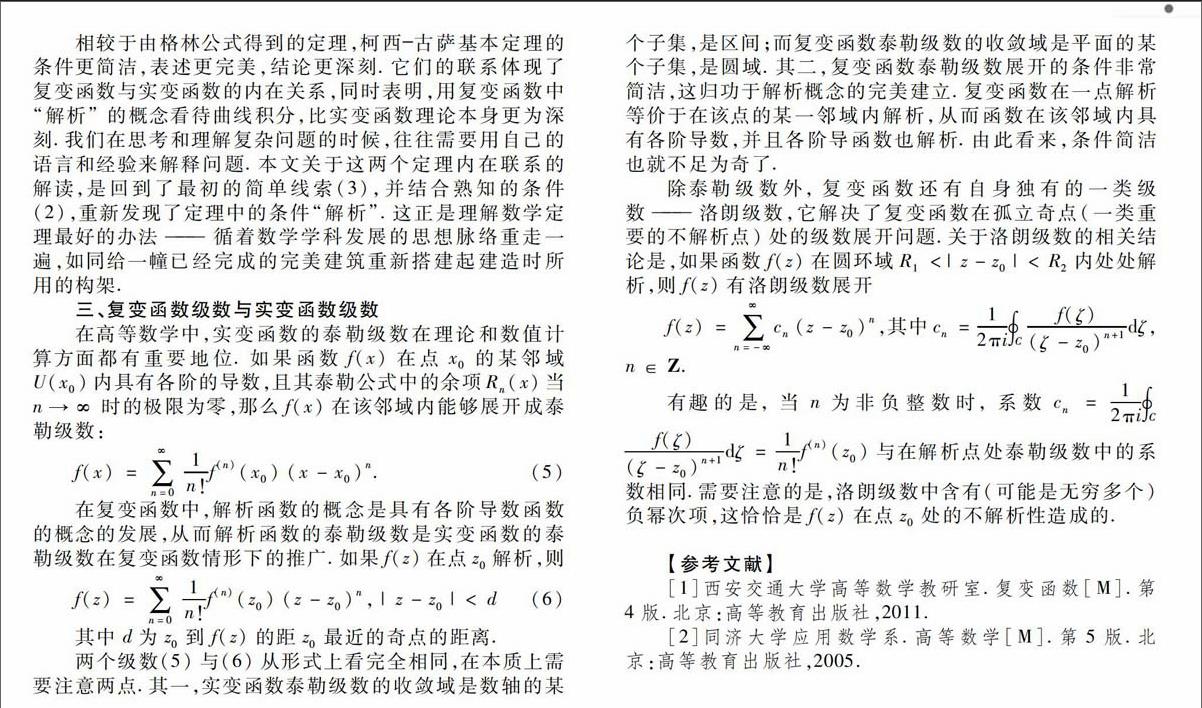 相较于由格林公式得到的定理,柯西-古萨基本定理的
条件更简洁,表述更完美,结论更深刻. 它们的联系体现了
复变函数与实变函数的内在关系,同时表明,用复变函数中
“解析”的概念看待曲线积分,比实变函数理论本身更为深
刻. 我们在思考和理解复杂问题的时候,往往需要用自己的
语言和经验来解释问题. 本文关于这两个定理内在联系的
解读,是回到了最初的简单线索(3),并结合熟知的条件
(2),重新发现了定理中的条件“解析”. 这正是理解数学定
理最好的办法 —— 循着数学学科发展的思想脉络重走一
遍,如同给一幢已经完成的完美建筑重新搭建起建造时所
用的构架.
三、复变函数级数与实变函数级数
在高等数学中,实变函数的泰勒级数在理论和数值计
算方面都有重要地位. 如果函数 f(x) 在点 x₀ 的某邻域
U(x₀) 内具有各阶的导数,且其泰勒公式中的余项 Rₙ(x) 当
n → ∞ 时的极限为零,那么 f(x) 在该邻域内能够展开成泰
勒级数:
f(x) = ∑_{n=0}^{∞} 1/n! f⁽ⁿ⁾(x₀)(x − x₀)ⁿ. (5)
在复变函数中,解析函数的概念是具有各阶导数函数
的概念的发展,从而解析函数的泰勒级数是实变函数的泰
勒级数在复变函数情形下的推广. 如果 f(z) 在点 z₀ 解析,则
f(z) = ∑_{n=0}^{∞} 1/n! f⁽ⁿ⁾(z₀)(z − z₀)ⁿ,| z − z₀ | < d (6)
其中 d 为 z₀ 到 f(z) 的距 z₀ 最近的奇点的距离.
两个级数(5) 与(6) 从形式上看完全相同,在本质上需
要注意两点. 其一,实变函数泰勒级数的收敛域是数轴的某
个子集,是区间;而复变函数泰勒级数的收敛域是平面的某
个子集,是圆域. 其二,复变函数泰勒级数展开的条件非常
简洁,这归功于解析概念的完美建立. 复变函数在一点解析
等价于在该点的某一邻域内解析,从而函数在该邻域内具
有各阶导数,并且各阶导函数也解析. 由此看来,条件简洁
也就不足为奇了.
除泰勒级数外, 复变函数还有自身独有的一类级
数 —— 洛朗级数,它解决了复变函数在孤立奇点(一类重
要的不解析点) 处的级数展开问题. 关于洛朗级数的相关结
论是,如果函数 f(z) 在圆环域 R₁ <| z − z₀ | < R₂ 内处处解
析,则 f(z) 有洛朗级数展开
f(z) = ∑_{n=−∞}^{∞} cₙ (z − z₀)ⁿ,其中 cₙ = 1/2πi ∮_C f(ζ)/(ζ − z₀)ⁿ⁺¹ dζ,
n ∈ Z.
有趣的是, 当 n 为非负整数时, 系数 cₙ = 1/2πi ∮_C
f(ζ)/(ζ − z₀)ⁿ⁺¹ dζ = 1/n! f⁽ⁿ⁾(z₀) 与在解析点处泰勒级数中的系
数相同. 需要注意的是,洛朗级数中含有(可能是无穷多个)
负幂次项,这恰恰是 f(z) 在点 z₀ 处的不解析性造成的.
【参考文献】
[1]西安交通大学高等数学教研室. 复变函数[M]. 第
4 版. 北京:高等教育出版社,2011.
[2]同济大学应用数学系. 高等数学[M]. 第 5 版. 北
京:高等教育出版社,2005.